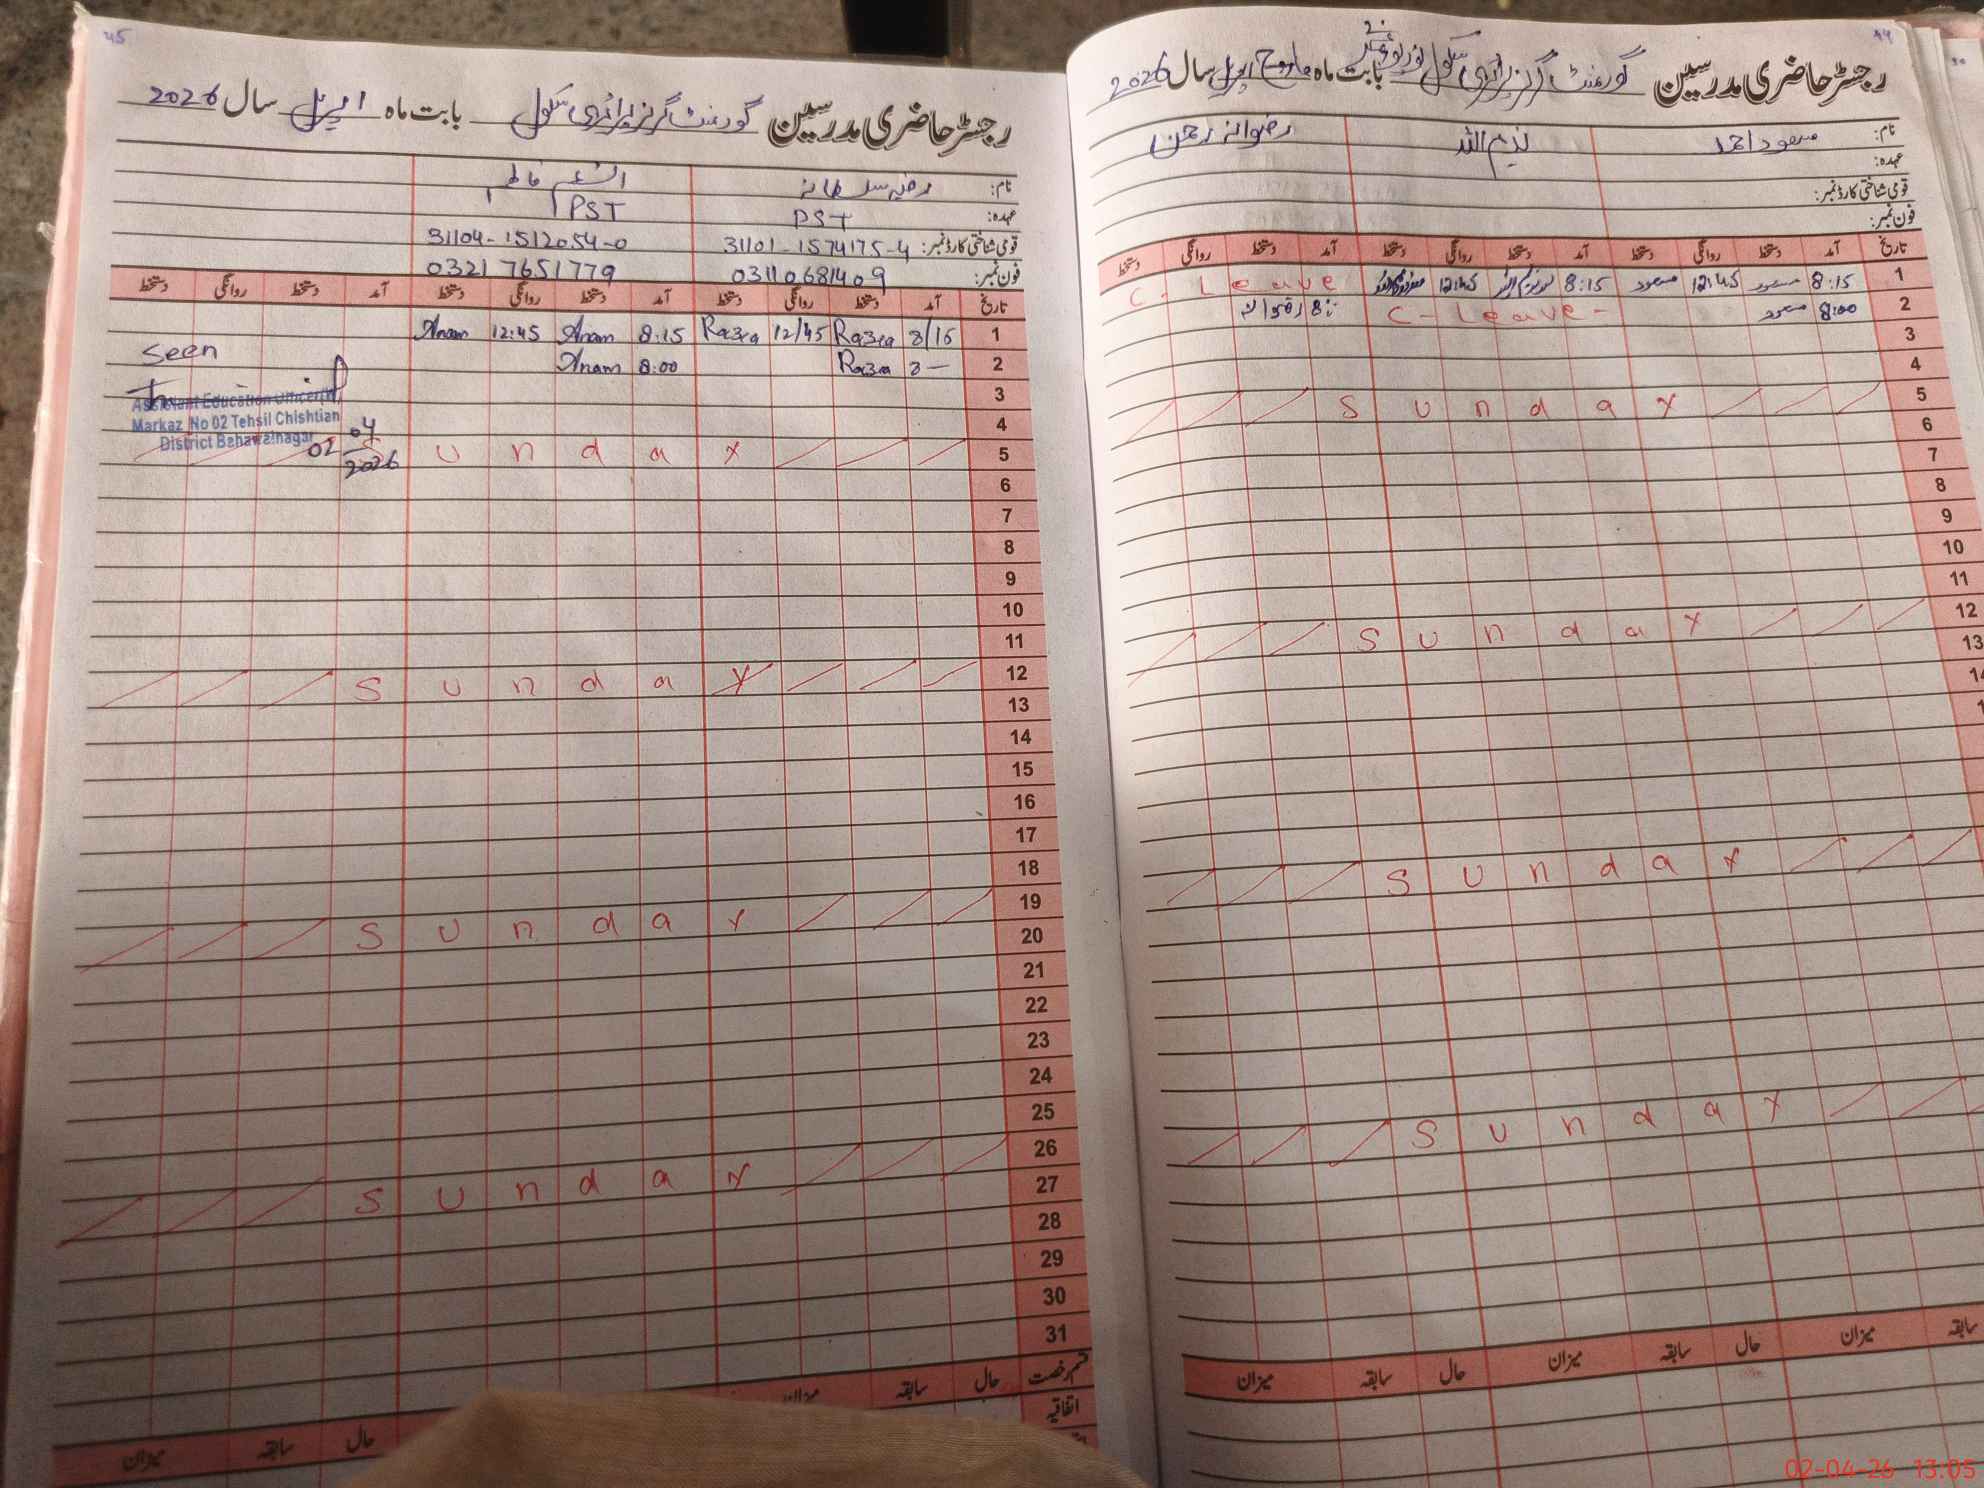 45
رجسٹر حاضری مدرسین گورنمنٹ گرلز پرائمری سکول بابت ماہ اپریل سال 2026
نام: رضیہ سلطانہ فاطمہ
عہدہ: PST PST
قومی شناختی کارڈ نمبر: 31101-1574175-4 31104-1512054-0
فون نمبر: 03110681409 03217651779
تاریخ آمد دستخط روانگی دستخط آمد دستخط روانگی دستخط آمد دستخط روانگی دستخط
1 8/15 Razia 12/45 Razia 8:15 Anam 12:45 Anam
2 8 — Razia 8:00 Anam
Seen
3
Assistant Education Officer
4
Markaz No 02 Tehsil Chishtian
District Bahawalnagar
02 04 2026
5 Sunday
6
7
8
9
10
11
12 Sunday
13
14
15
16
17
18
19 Sunday
20
21
22
23
24
25
26 Sunday
27
28
29
30
31
قسم رخصت حال سابقہ میزان حال سابقہ میزان
اتفاقیہ
رجسٹر حاضری مدرسین گورنمنٹ گرلز پرائمری سکول بابت ماہ مارچ اپریل سال 2026
نام: مسعود احمد ندیم اللہ رضوانہ رحمن
عہدہ:
قومی شناختی کارڈ نمبر:
فون نمبر:
تاریخ آمد دستخط روانگی دستخط آمد دستخط روانگی دستخط آمد دستخط روانگی دستخط
1 8:15 مسعود 12:45 مسعود 8:15 12:45 C-Leave
2 8:00 مسعود C-Leave- رضوانہ
3
4
5 Sunday
6
7
8
9
10
11
12 Sunday
13
Sunday
Sunday
سابقہ میزان حال سابقہ میزان حال سابقہ میزان
02-04-26 13:05